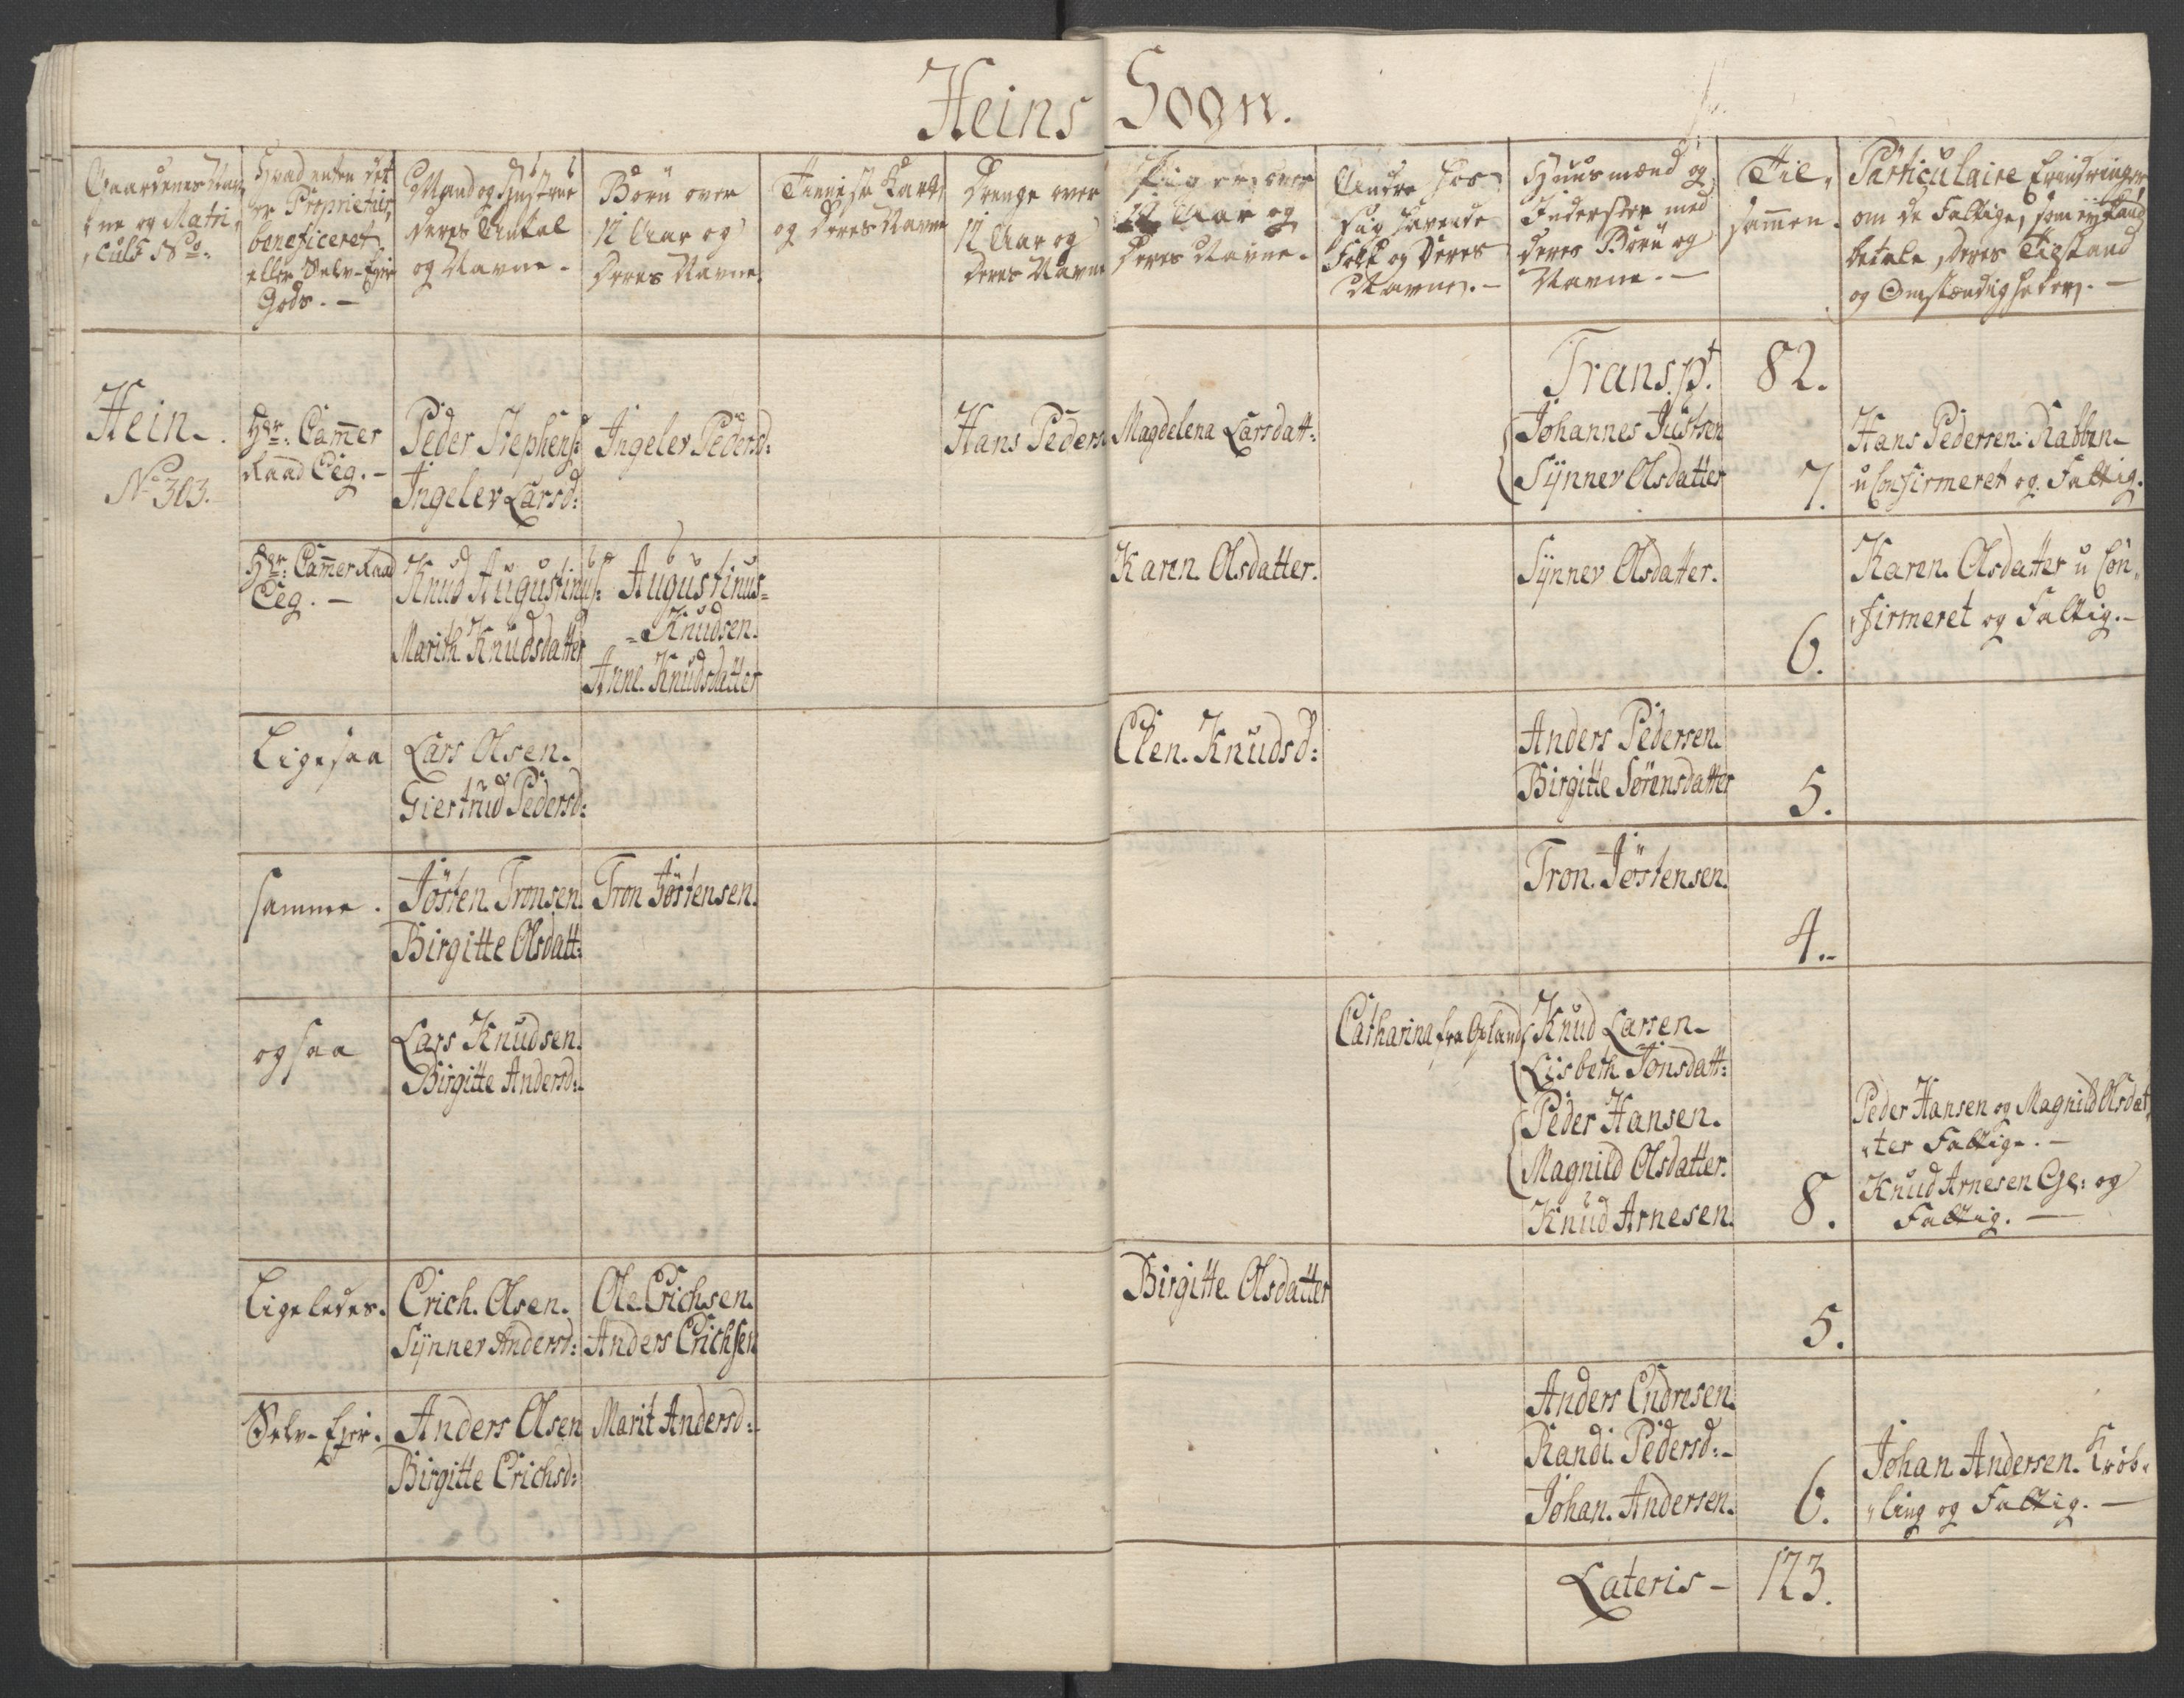 Heins Sogn.
Gaardenes Nav
ne og Matri
culs No.
Hvad enten det
er Proprietair,
beneficeret
eller Selv-Ejer
Gods. -
Mand og Hustrue
deres Antal
og Navne -
Børn over
12 Aar og
deres Navne.
Tieniste Karle
og deres Navne
Drenge over
12 Aar og
deres Navne
Piger over
12 Aar og
deres Navne -
Andre hos
sig havende
Folk og deres
Navne. -
Huusmænd og
Inderster med
deres Børn og
Navne. -
Til-
sammen.
Particulaire Erindringer
om de Fattige, som ej kand
betale, deres Tilstand
og Omstændigheder. -
Transp.t 82.
Hein.
No 303.
Hr: Cammer
Raad Ceg. -
Peder Stephens:
Ingelev Larsd:
Ingelev Pedersd:
Hans Peders
Magdelena Larsdatt:
Johannes Justsen
Synnev Olsdatter
7.
Hans Pedersen
uConfirmeret og Fattig.
Hr: Cammer Raad
Ceg. -
Knud Augustinus:
Marith Knudsdatter
Augustinus=
=Knudsen.
Anne Knudsdatter
Karen Olsdatter.
Synnev Olsdatter.
6.
Karen Olsdatter u Con-
firmeret og Fattig. -
Ligesaa
Lars Olsen.
Giertrud Pedersd:
Elen Knudsd:
Anders Pedersen.
Birgitte Sørensdatter
5.
samme.
Jösten Tronsen.
Birgitte Olsdatt:
Tron Jöstensen.
Tron Jöstensen.
4.-
ogsaa
Lars Knudsen.
Birgitte Andersd:
Catharina fra Opland
Knud Larsen.
Lisbeth Jonsdatt:
Peder Hansen.
Magnild Olsdatter.
Knud Arnesen.
8.
Peder Hansen og Magnild Olsdat-
ter Fattige. -
Knud Arnesen Gl: og
Fattig. -
Ligeledes.
Erich Olsen.
Synnev Andersd:
Ole Erichsen.
Anders Erichsen
Birgitte Olsdatter
5.
Selv-Ejer.
Anders Olsen
Birgitte Erichsd:
Marit Andersd:
Anders Endresen.
Randi Pedersd:
Johan Andersen.
6.
Johan Andersen. Krøb-
ling og Fattig. -
Lateris - 123.